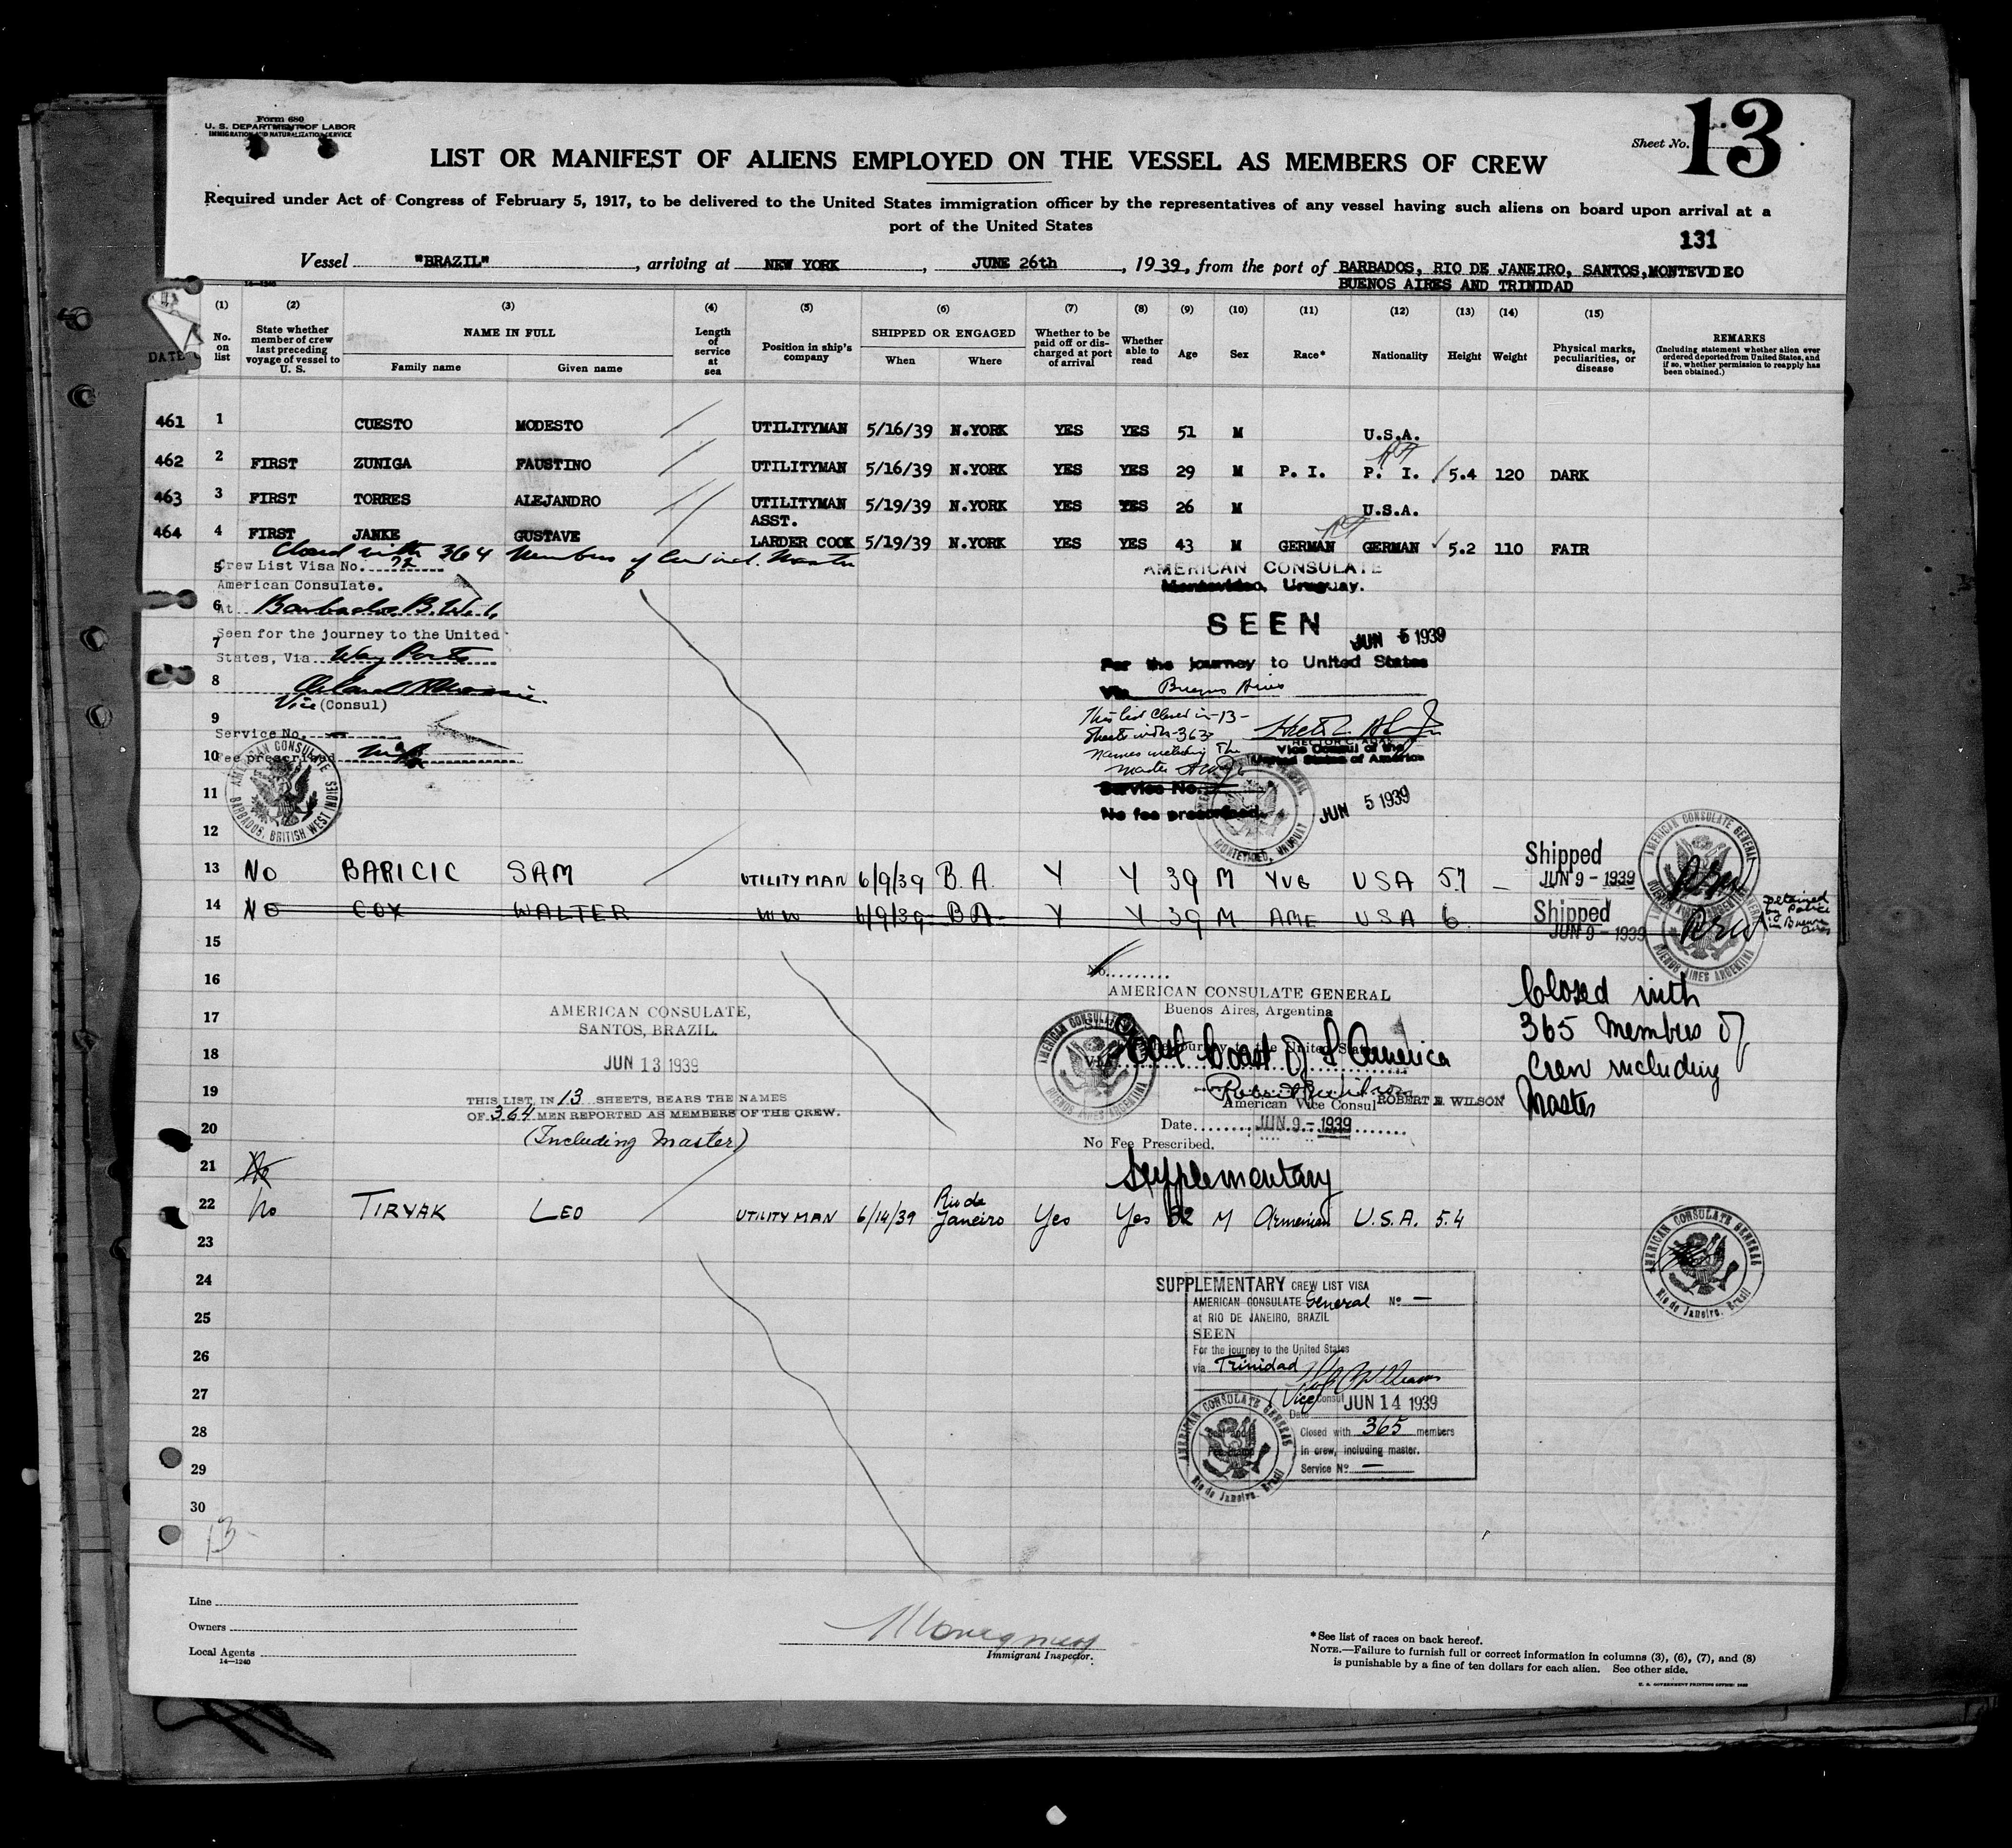 Form 680
U. S. DEPARTMENT OF LABOR
IMMIGRATION AND NATURALIZATION SERVICE
Sheet No. 13
LIST OR MANIFEST OF ALIENS EMPLOYED ON THE VESSEL AS MEMBERS OF CREW
Required under Act of Congress of February 5, 1917, to be delivered to the United States immigration officer by the representatives of any vessel having such aliens on board upon arrival at a
port of the United States
131
Vessel "BRAZIL", arriving at NEW YORK, JUNE 26th, 1939, from the port of BARBADOS, RIO DE JANEIRO, SANTOS, MONTEVIDEO
BUENOS AIRES AND TRINIDAD
14—1240
(1) (2) (3) (4) (5) (6) (7) (8) (9) (10) (11) (12) (13) (14) (15)
DATE
No. on list
State whether member of crew last preceding voyage of vessel to U. S.
NAME IN FULL
Family name
Given name
Length of service at sea
Position in ship's company
SHIPPED OR ENGAGED
When
Where
Whether to be paid off or discharged at port of arrival
Whether able to read
Age
Sex
Race*
Nationality
Height
Weight
Physical marks, peculiarities, or disease
REMARKS
(Including statement whether alien ever ordered deported from United States, and if so, whether permission to reapply has been obtained.)
461 1 CUESTO MODESTO UTILITYMAN 5/16/39 N.YORK YES YES 51 M U.S.A.
462 2 FIRST ZUNIGA FAUSTINO UTILITYMAN 5/16/39 N.YORK YES YES 29 M P. I. P. I. 5.4 120 DARK
463 3 FIRST TORRES ALEJANDRO UTILITYMAN 5/19/39 N.YORK YES YES 26 M U.S.A.
464 4 FIRST JANKE GUSTAVE ASST. LARDER COOK 5/19/39 N.YORK YES YES 43 M GERMAN GERMAN 5.2 110 FAIR
Closed with 364 Members of Crew incl. Master
5 Crew List Visa No. 72
American Consulate.
6 At Barbados, B.W.I.
7 Seen for the journey to the United
States, Via Way Ports
8
Vice (Consul)
9 Service No. —
10 Fee prescribed
AMERICAN CONSULATE
BARBADOS, BRITISH WEST INDIES
AMERICAN CONSULATE
Montevideo, Uruguay.
SEEN JUN 5 1939
For the journey to United States
Via Buenos Aires
This list closed in -13-
Sheets with -363
names including the
master
HECTOR C. ADAM
Vice Consul of the
United States of America
Service No.
No fee prescribed.
JUN 5 1939
MONTEVIDEO, URUGUAY
11
12
13 NO BARICIC SAM UTILITYMAN 6/9/39 B.A. Y Y 39 M YUG USA 5.7 — Shipped JUN 9 - 1939
AMERICAN CONSULATE GENERAL
BUENOS AIRES ARGENTINA
14 NO COX WALTER WW 6/9/39 B.A. Y Y 39 M AME USA 6 Shipped JUN 9 - 1939
Detained by Police in Buenos Aires
BUENOS AIRES ARGENTINA
15
16
17
18
19
20
AMERICAN CONSULATE,
SANTOS, BRAZIL.
JUN 13 1939
THIS LIST, IN 13 SHEETS, BEARS THE NAMES
OF 364 MEN REPORTED AS MEMBERS OF THE CREW.
(Including Master)
No.
AMERICAN CONSULATE GENERAL
Buenos Aires, Argentina
For the journey to the United States
Via East Coast of S America
American Vice Consul ROBERT E. WILSON
Date JUN 9 - 1939
No Fee Prescribed.
AMERICAN CONSULATE GENERAL
BUENOS AIRES ARGENTINA
Closed with
365 Members of
Crew including
Master
Supplementary
21 No
22 No TIRYAK LEO UTILITYMAN 6/14/39 Rio de Janeiro Yes Yes 32 M Armenian U.S.A. 5.4
AMERICAN CONSULATE GENERAL
Rio de Janeiro, Brazil
23
24
25
26
27
28
29
30
SUPPLEMENTARY CREW LIST VISA
AMERICAN CONSULATE General No —
at RIO DE JANEIRO, BRAZIL
SEEN
For the journey to the United States
via Trinidad
Vice Consul
Date JUN 14 1939
Closed with 365 members
in crew, including master.
Service No —
AMERICAN CONSULATE GENERAL
Rio de Janeiro, Brazil
13
Line
Owners
Local Agents
14—1240
Immigrant Inspector.
*See list of races on back hereof.
NOTE.—Failure to furnish full or correct information in columns (3), (6), (7), and (8)
is punishable by a fine of ten dollars for each alien. See other side.
U. S. GOVERNMENT PRINTING OFFICE